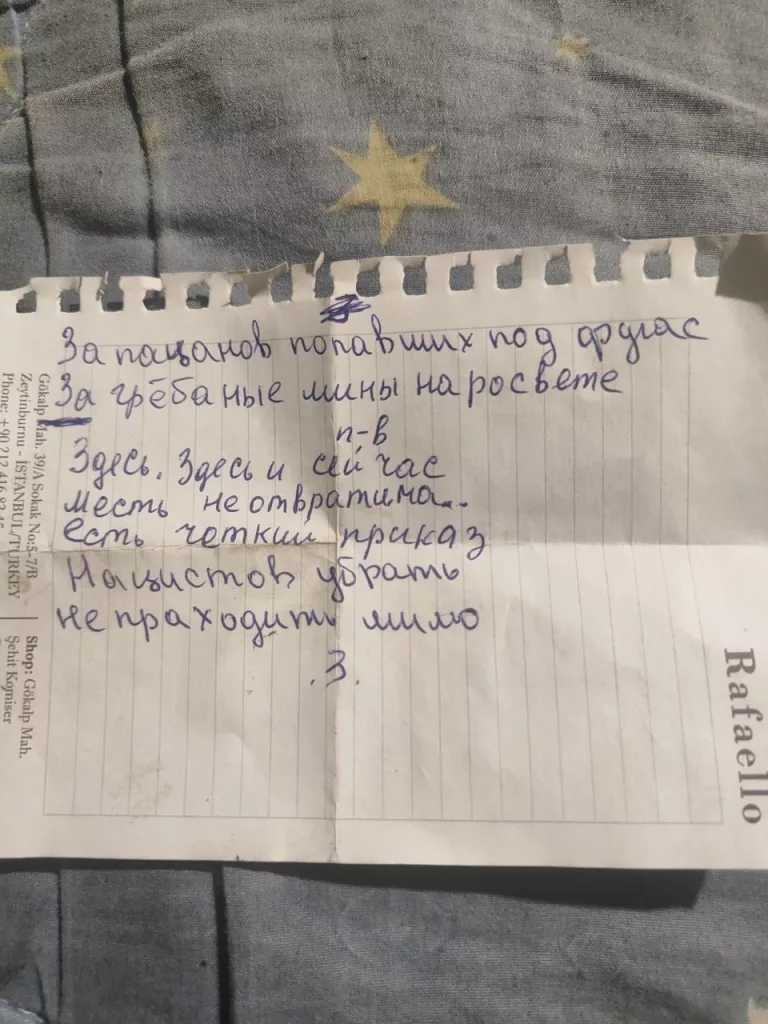 За пацанов попавших под фугас
За грёбаные мины на росвете
п-в
Здесь. Здесь и сейчас
месть не отвратима..
есть четкий приказ
Нацистов убрать
не праходить мимо
.З.
Gökalp Mah. 39/A Sokak No:5-7/B
Zeytinburnu - İSTANBUL/TURKEY
Phone: +90 212 416
Shop: Gökalp Mah.
Şehit Komiser
Rafaello